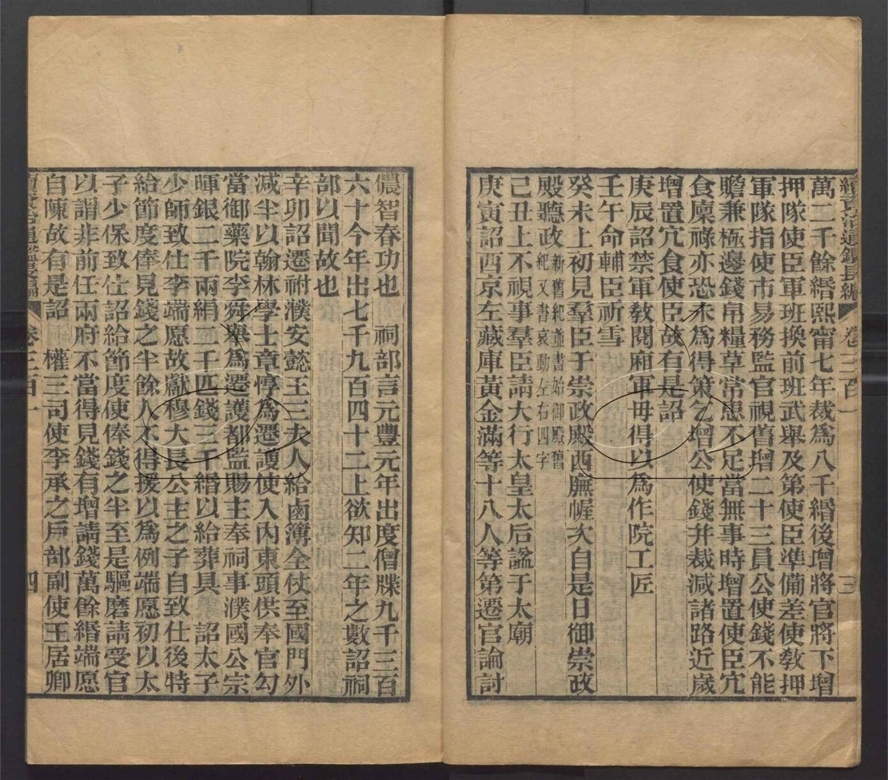 續資治通鑑長編 卷三百一 三
萬二千餘緡熙甯七年裁爲八千緡後增將官將下增
押隊使臣軍班換前班武舉及第使臣準備差使敎押
軍隊指使市易務監官視舊增二十三員公使錢不能
贍兼極邊錢帛糧草常患不足當無事時增置使臣宂
食廩祿亦恐未爲得策乞增公使錢并裁減諸路近歲
增置宂食使臣故有是詔
庚辰詔禁軍敎閱廂軍毋得以爲作院工匠
壬午命輔臣祈雪
癸未上初見羣臣于崇政殿西廡幄次自是日御崇政
殿聽政新舊紀並書始御殿舊紀又書哀動左右四字
己丑上不視事羣臣請大行太皇太后謚于太廟
庚寅詔西京左藏庫黃金滿等十八人等第遷官論討
儂智春功也 祠部言元豐元年出度僧牒九千三百
六十今年出七千九百四十二上欲知二年之數詔祠
部以聞故也
辛卯詔遷祔濮安懿王三夫人給鹵簿全仗至國門外
減半以翰林學士章惇爲遷護使入內東頭供奉官勾
當御藥院李舜舉爲遷護都監賜主奉祠事濮國公宗
暉銀二千兩絹二千匹錢三千緡以給葬具 詔太子
少師致仕李端愿故獻穆大長公主之子自致仕後特
給節度俸見錢之半餘人不得援以爲例端愿初以太
子少保致仕詔給節度使俸錢之半至是驅磨請受官
以謂非前任兩府不當得見錢有增請錢萬餘緡端愿
自陳故有是詔 權三司使李承之戶部副使王居卿
續資治通鑑長編 卷三百一 四